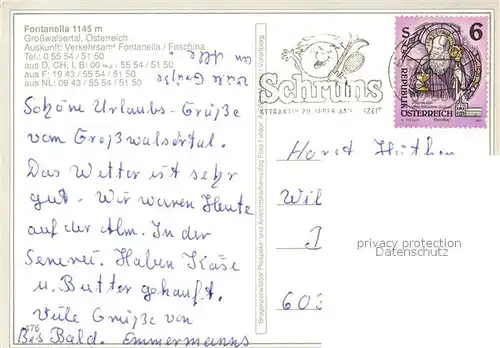 Fontanella 1145 m
Großwalsertal, Österreich
Auskunft: Verkehrsamt Fontanella / Faschina
Tel.: 0 55 54 / 51 50
aus D, CH, I, B: 00 43 - 55 54 / 51 50
aus F: 19 43 / 55 54 / 51 50
aus NL: 09 43 / 55 54 / 51 50
Schöne Urlaubs-Grüße
vom Großwalsertal.
Das Wetter ist sehr
gut. Wir waren Heute
auf der Alm. In der
Sennerei. Haben Käse
u. Butter gekauft.
Viele Grüße von
Bis Bald. Emmermanns
476
Schruns
ATTRAKTIV ZU JEDER JAHRESZEIT
6
REPUBLIK
ÖSTERREICH
Bregenzerwälder Prospekt- und Ansichtskartenverlag Foto Felder
Horst
Wil
603
privacy protection
Datenschutz